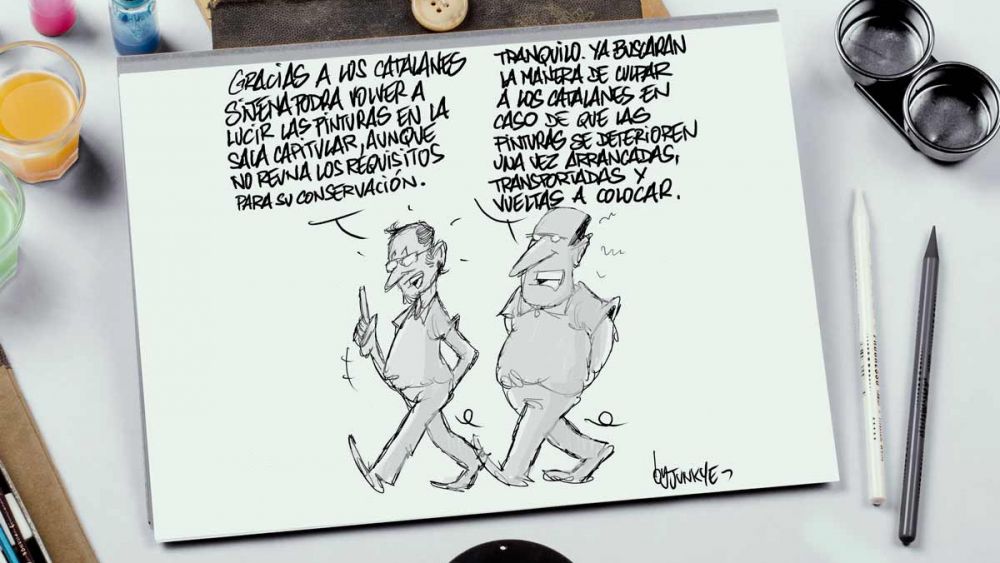 GRACIAS A LOS CATALANES
SIJENA PODRÁ VOLVER A
LUCIR LAS PINTURAS EN LA
SALA CAPITULAR, AUNQUE
NO REUNA LOS REQUISITOS
PARA SU CONSERVACIÓN.
TRANQUILO. YA BUSCARAN
LA MANERA DE CULPAR
Á LOS CATALANES EN
CASO DE QUE LAS
PINTURAS SE DETERIOREN
UNA VEZ ARRANCADAS,
TRANSPORTADAS Y
VUELTAS A COLOCAR.
byJUNKYE